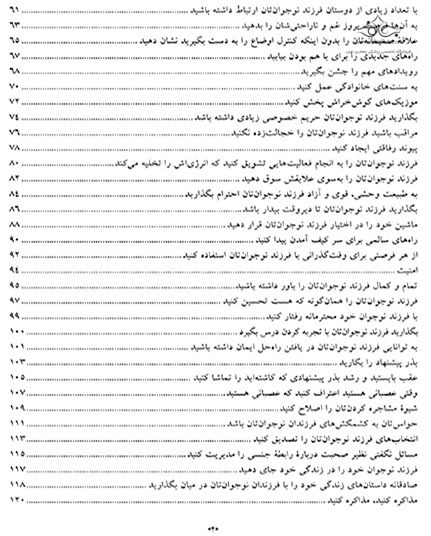 با تعداد زیادی از دوستان فرزند نوجوان‌تان ارتباط داشته باشید ..... ۶۱
به آن‌ها بروز غم و ناراحتی‌شان را بدهید ..... ۶۳
علاقهٔ صمیمانه‌تان را بدون اینکه کنترل اوضاع را به دست بگیرید نشان دهید ..... ۶۵
راه‌های جدیدی را برای با هم بودن بیابید ..... ۶۷
رویدادهای مهم را جشن بگیرید ..... ۶۸
به سنت‌های خانوادگی عمل کنید ..... ۷۰
موزیک‌های گوش‌خراش پخش کنید ..... ۷۲
بگذارید فرزند نوجوان‌تان حریم خصوصی زیادی داشته باشد ..... ۷۴
مراقب باشید فرزند نوجوان‌تان را خجالت‌زده نکنید ..... ۷۶
پیوند رفاقتی ایجاد کنید ..... ۷۸
فرزند نوجوان‌تان را به انجام فعالیت‌هایی تشویق کنید که انرژی‌اش را تخلیه می‌کند. ۸۰
فرزند نوجوان‌تان را به‌سوی علایقش سوق دهید ..... ۸۲
به طبیعت وحشی، قوی و آزاد فرزند نوجوان‌تان احترام بگذارید. ..... ۸۴
بگذارید فرزند نوجوان‌تان تا دیروقت بیدار باشد ..... ۸۶
ماشین خود را در اختیار فرزند نوجوان‌تان قرار دهید ..... ۸۸
راه‌های سالمی برای سر کیف آمدن پیدا کنید ..... ۹۰
از هر فرصتی برای وقت‌گذرانی با فرزند نوجوان‌تان استفاده کنید ..... ۹۲
امنیت ..... ۹۴
تمام و کمال فرزند نوجوان‌تان را باور داشته باشید. ..... ۹۵
فرزند نوجوان‌تان را همان‌گونه که هست تحسین کنید ..... ۹۷
با فرزند نوجوان خود محترمانه رفتار کنید ..... ۹۹
بگذارید فرزند نوجوان‌تان با تجربه کردن درس بگیرد ..... ۱۰۰
به توانایی فرزند نوجوان‌تان در یافتن راه‌حل ایمان داشته باشید ..... ۱۰۱
بذر پیشنهاد را بکارید ..... ۱۰۳
عقب بایستید و رشد بذر پیشنهادی که کاشته‌اید را تماشا کنید ..... ۱۰۵
وقتی عصبانی هستید اعتراف کنید که عصبانی هستید ..... ۱۰۷
شیوهٔ مشاجره کردن‌تان را اصلاح کنید ..... ۱۰۹
حواس‌تان به کشمکش‌های فرزندان نوجوان‌تان باشد ..... ۱۱۱
انتخاب‌های فرزند نوجوان‌تان را تصدیق کنید ..... ۱۱۳
مسائل نگفتنی نظیر صحبت دربارهٔ رابطهٔ جنسی را مدیریت کنید ..... ۱۱۵
فرزند نوجوان خود را در زندگی خود جای دهید ..... ۱۱۷
صادقانه داستان‌های زندگی خود را با فرزندان نوجوان‌تان در میان بگذارید ..... ۱۱۸
مذاکره کنید، مذاکره کنید ..... ۱۲۰